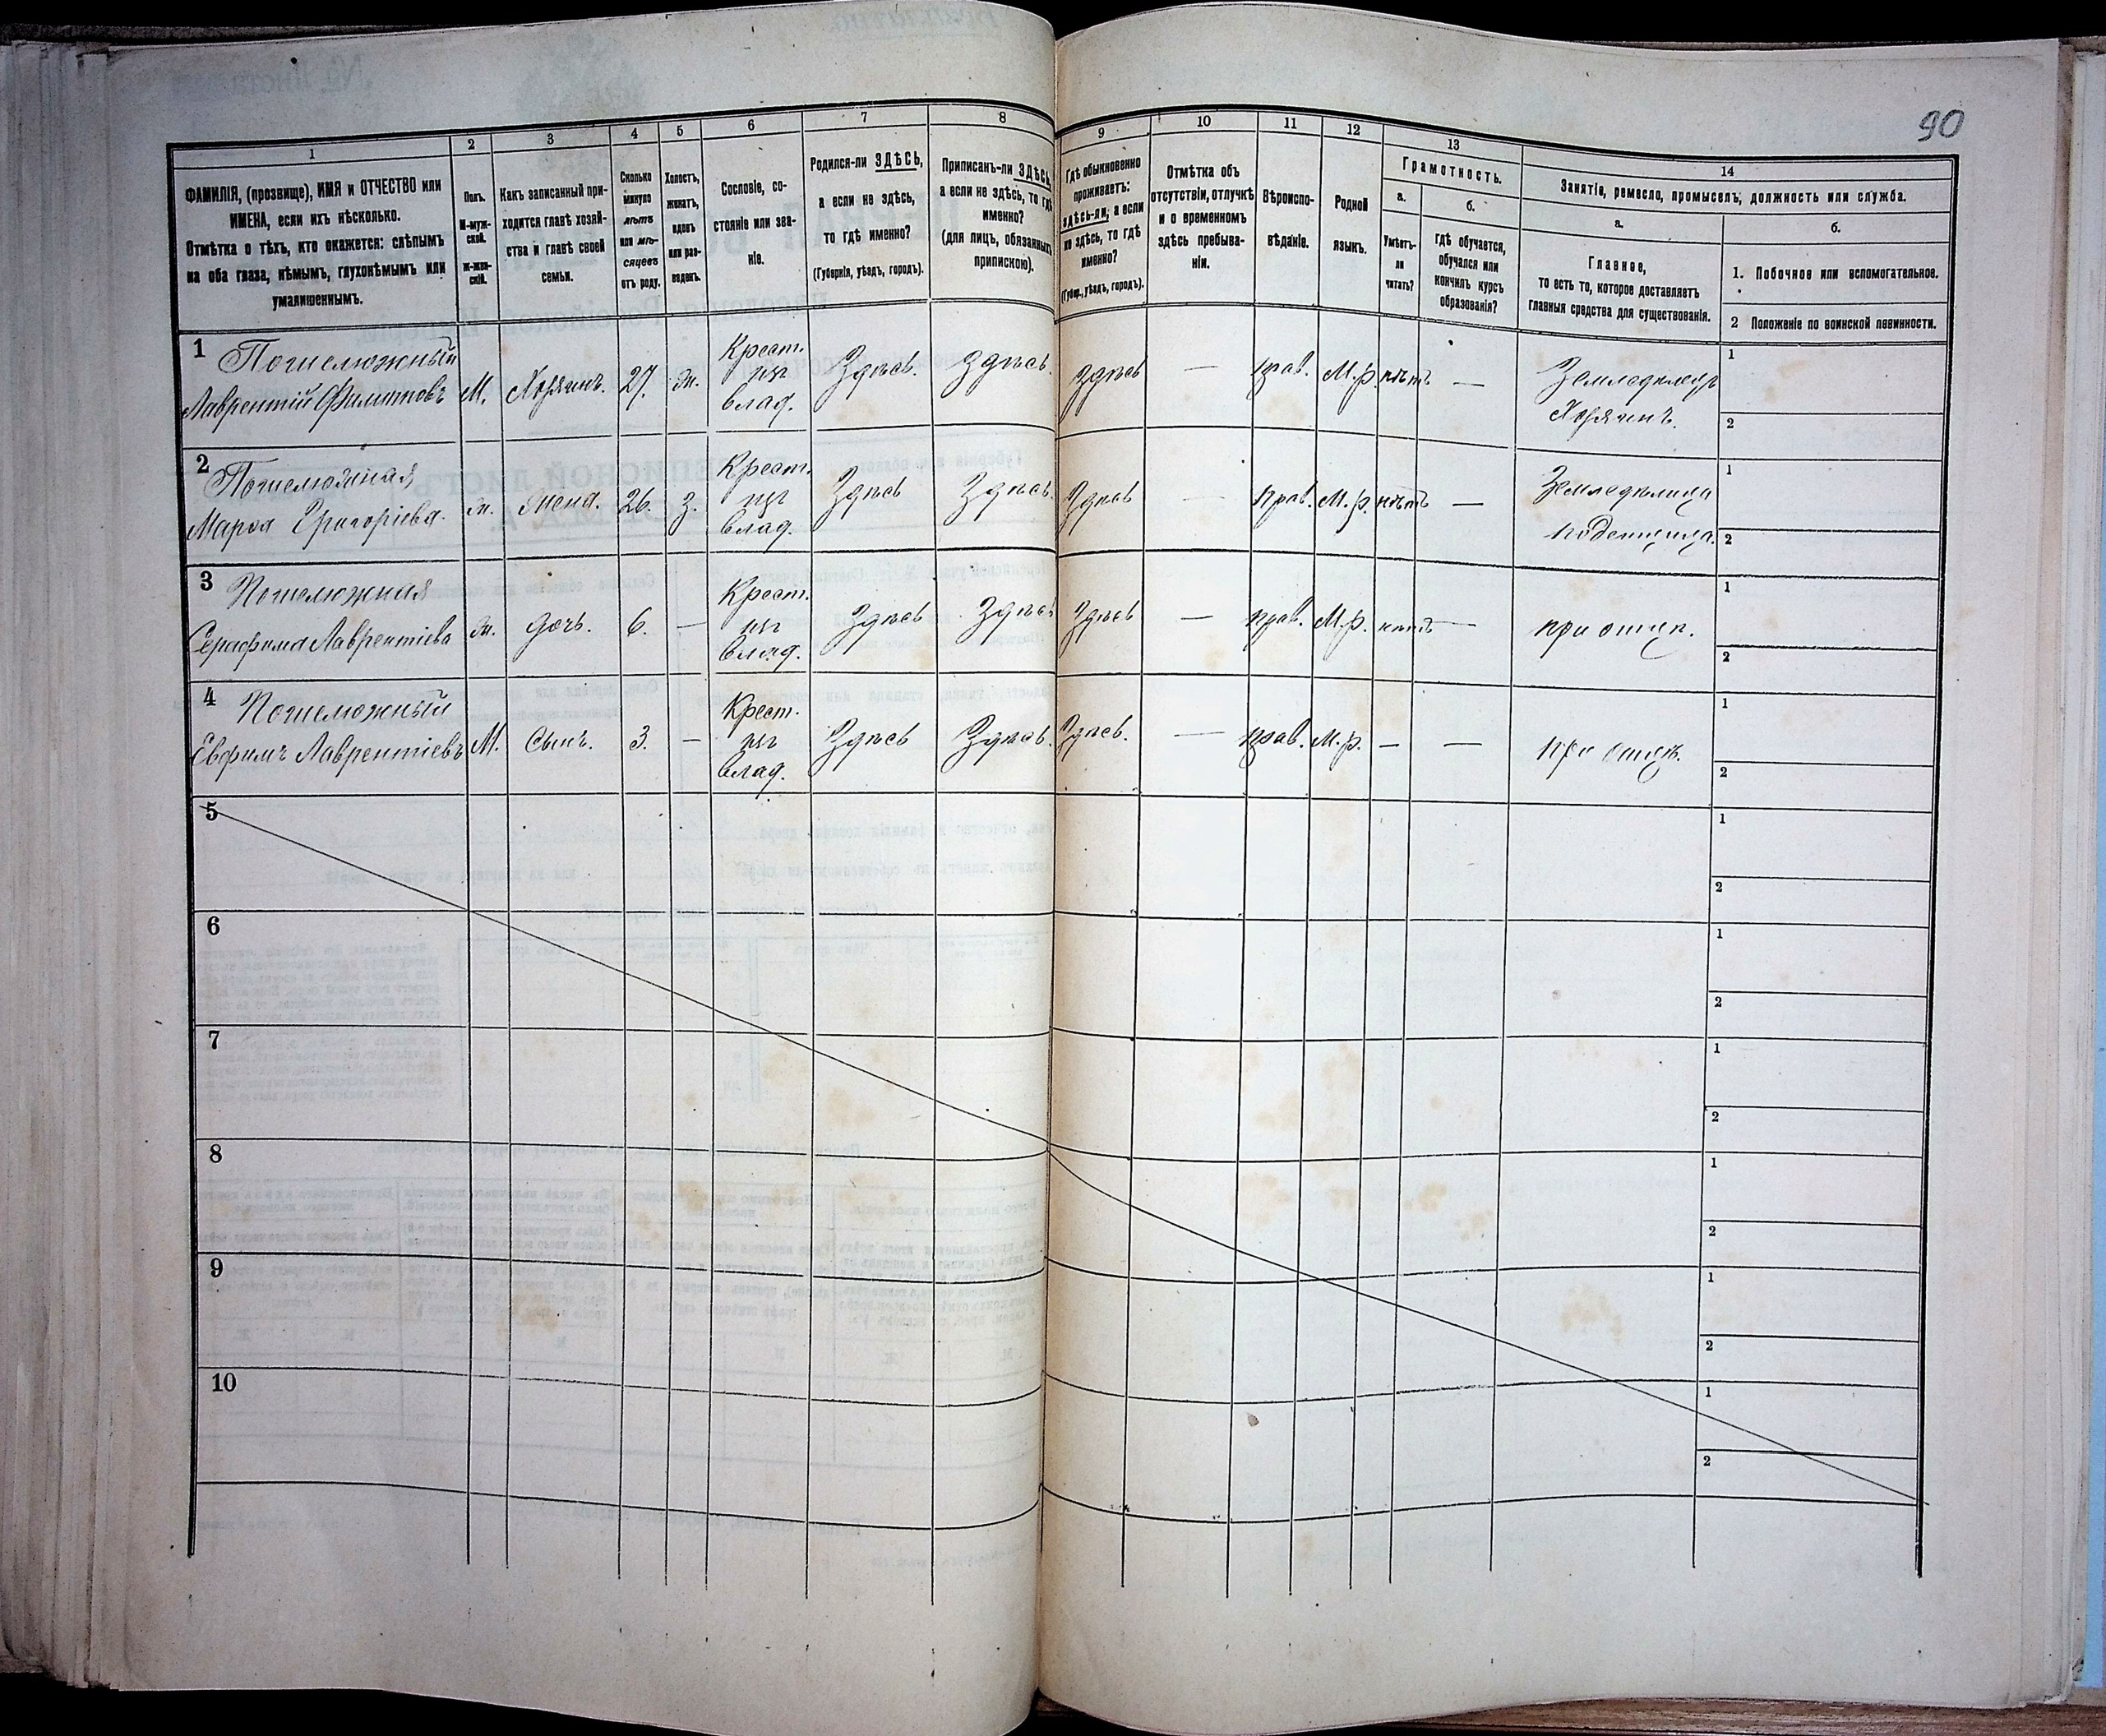 90
1
2
3
4
5
6
7
8
9
10
11
12
13
14
ФАМИЛІЯ, (прозвище), ИМЯ и ОТЧЕСТВО или
ИМЕНА, если ихъ нѣсколько.
Отмѣтка о тѣхъ, кто окажется: слѣпымъ
на оба глаза, нѣмымъ, глухонѣмымъ или
умалишеннымъ.
Полъ.
М-муж-
ской.
Ж-жен-
скій.
Какъ записанный при-
ходится главѣ хозяй-
ства и главѣ своей
семьи.
Сколько
минуло
лѣтъ
или мѣ-
сяцевъ
отъ роду.
Холостъ,
женатъ,
вдовъ
или раз-
веденъ.
Сословіе, со-
стояніе или зва-
ніе.
Родился-ли ЗДѢСЬ,
а если не здѣсь,
то гдѣ именно?
(Губернія, уѣздъ, городъ).
Приписанъ-ли ЗДѢСЬ,
а если не здѣсь, то гдѣ
именно?
(для лицъ, обязанныхъ
припискою).
Гдѣ обыкновенно
проживаетъ:
здѣсь-ли, а если
не здѣсь, то гдѣ
именно?
(Губер., уѣздъ, городъ).
Отмѣтка объ
отсутствіи, отлучкѣ
и о временномъ
здѣсь пребыва-
ніи.
Вѣроиспо-
вѣданіе.
Родной
языкъ.
Грамотность.
а.
Умѣетъ-
ли
читать?
б.
гдѣ обучается,
обучался или
кончилъ курсъ
образованія?
Занятіе, ремесло, промыселъ, должность или служба.
а.
Главное,
то есть то, которое доставляетъ
главныя средства для существованія.
б.
1. Побочное или вспомогательное.
2 Положеніе по воинской повинности.
1
Лаврентій Филиповъ
М. Хозяинъ. 27. ж.
Крест.
изъ
влад.
Здѣсь. Здѣсь. Здѣсь — прав. М.р. нѣтъ —
Хозяинъ.
1
2
2
Марья Григорiева.
ж. жена. 26. з.
Крест.
изъ
влад.
Здѣсь Здѣсь. Здѣсь — прав. М.р. нѣтъ —
1
2
3
Серафима Лаврентіева
ж. дочь. 6. —
Крест.
изъ
влад.
Здѣсь Здѣсь Здѣсь — прав. М.р. нѣтъ — при отцѣ.
1
2
4
Евфимъ Лаврентіевъ
М. Сынъ. 3. —
Крест.
изъ
влад.
Здѣсь Здѣсь. Здѣсь. — прав. М.р. — — при отцѣ.
1
2
5
1
2
6
1
2
7
1
2
8
1
2
9
1
2
10
1
2